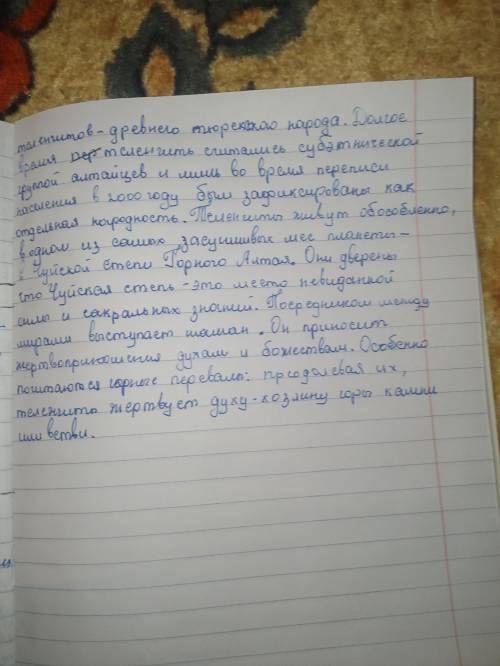 теленгитов - древнего тюркского народа. Долгое
время теленгить считались субэтнической
группой алтайцев и лишь во время переписи
населения в 2000 году был зафиксированы как
отдельная народность. Теленгиты живут обособленно,
в одном из самых засушливых мес планеты -
в Чуйской степи Горного Алтая. Они уверены
что Чуйская степь - это место невиданной
силы и сакральных знаний. Посредником между
мирами выступает шаман. Он приносит
жертвоприношения духам и божествам. Особенно
почитаются горные перевалы: преодолевая их,
теленгить жертвует духу-хозяину горы камни
или ветви.